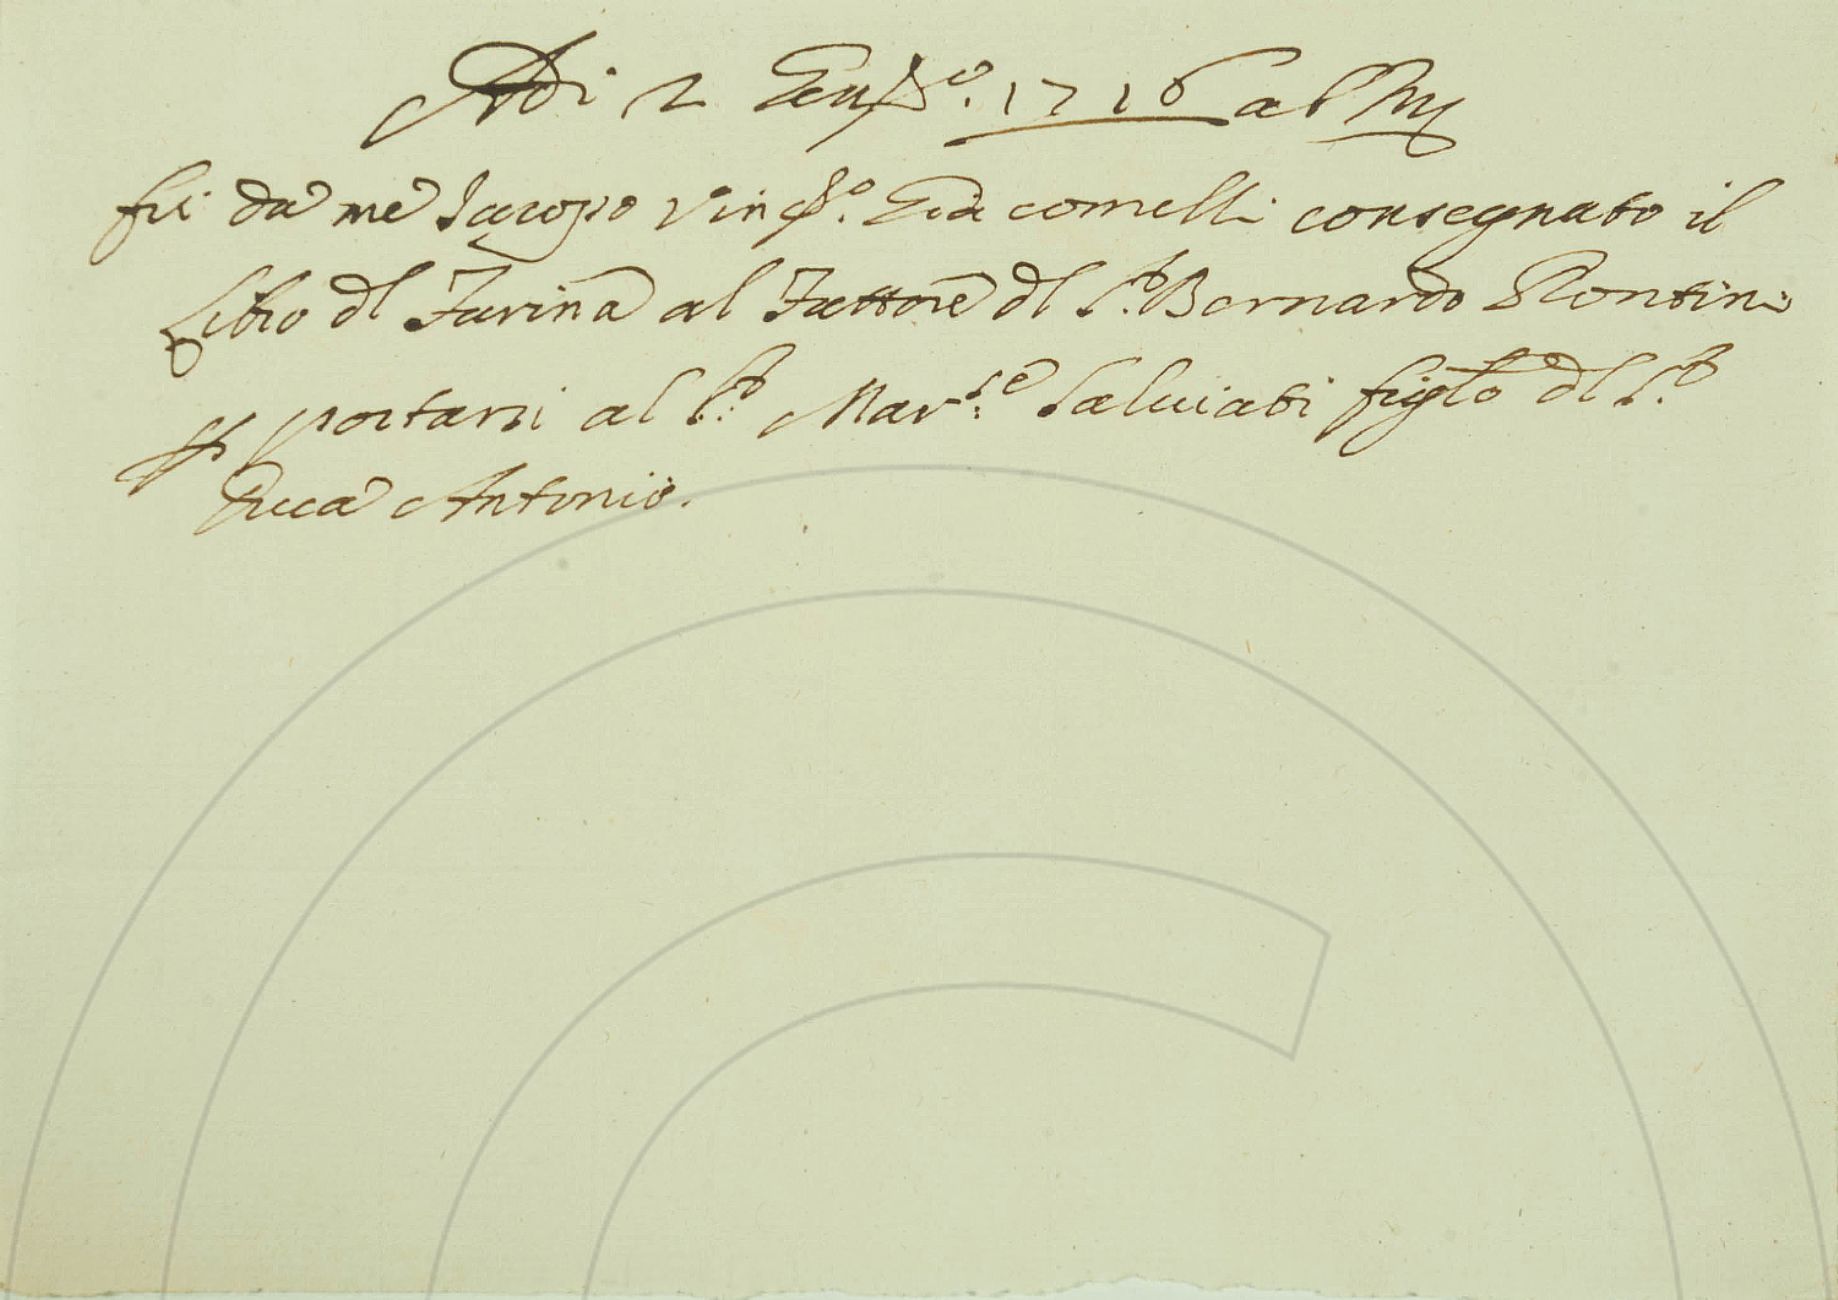 Adi 2 Genn.o 1716 al
fu da me Jacopo Vinc.o Giacomelli consegnato il
Libro dl Farina al Fattore dl S.r Bernardo Pontini
portarsi al S.r Mar.se Salviati figlo dl S.r
Duca Antonio.